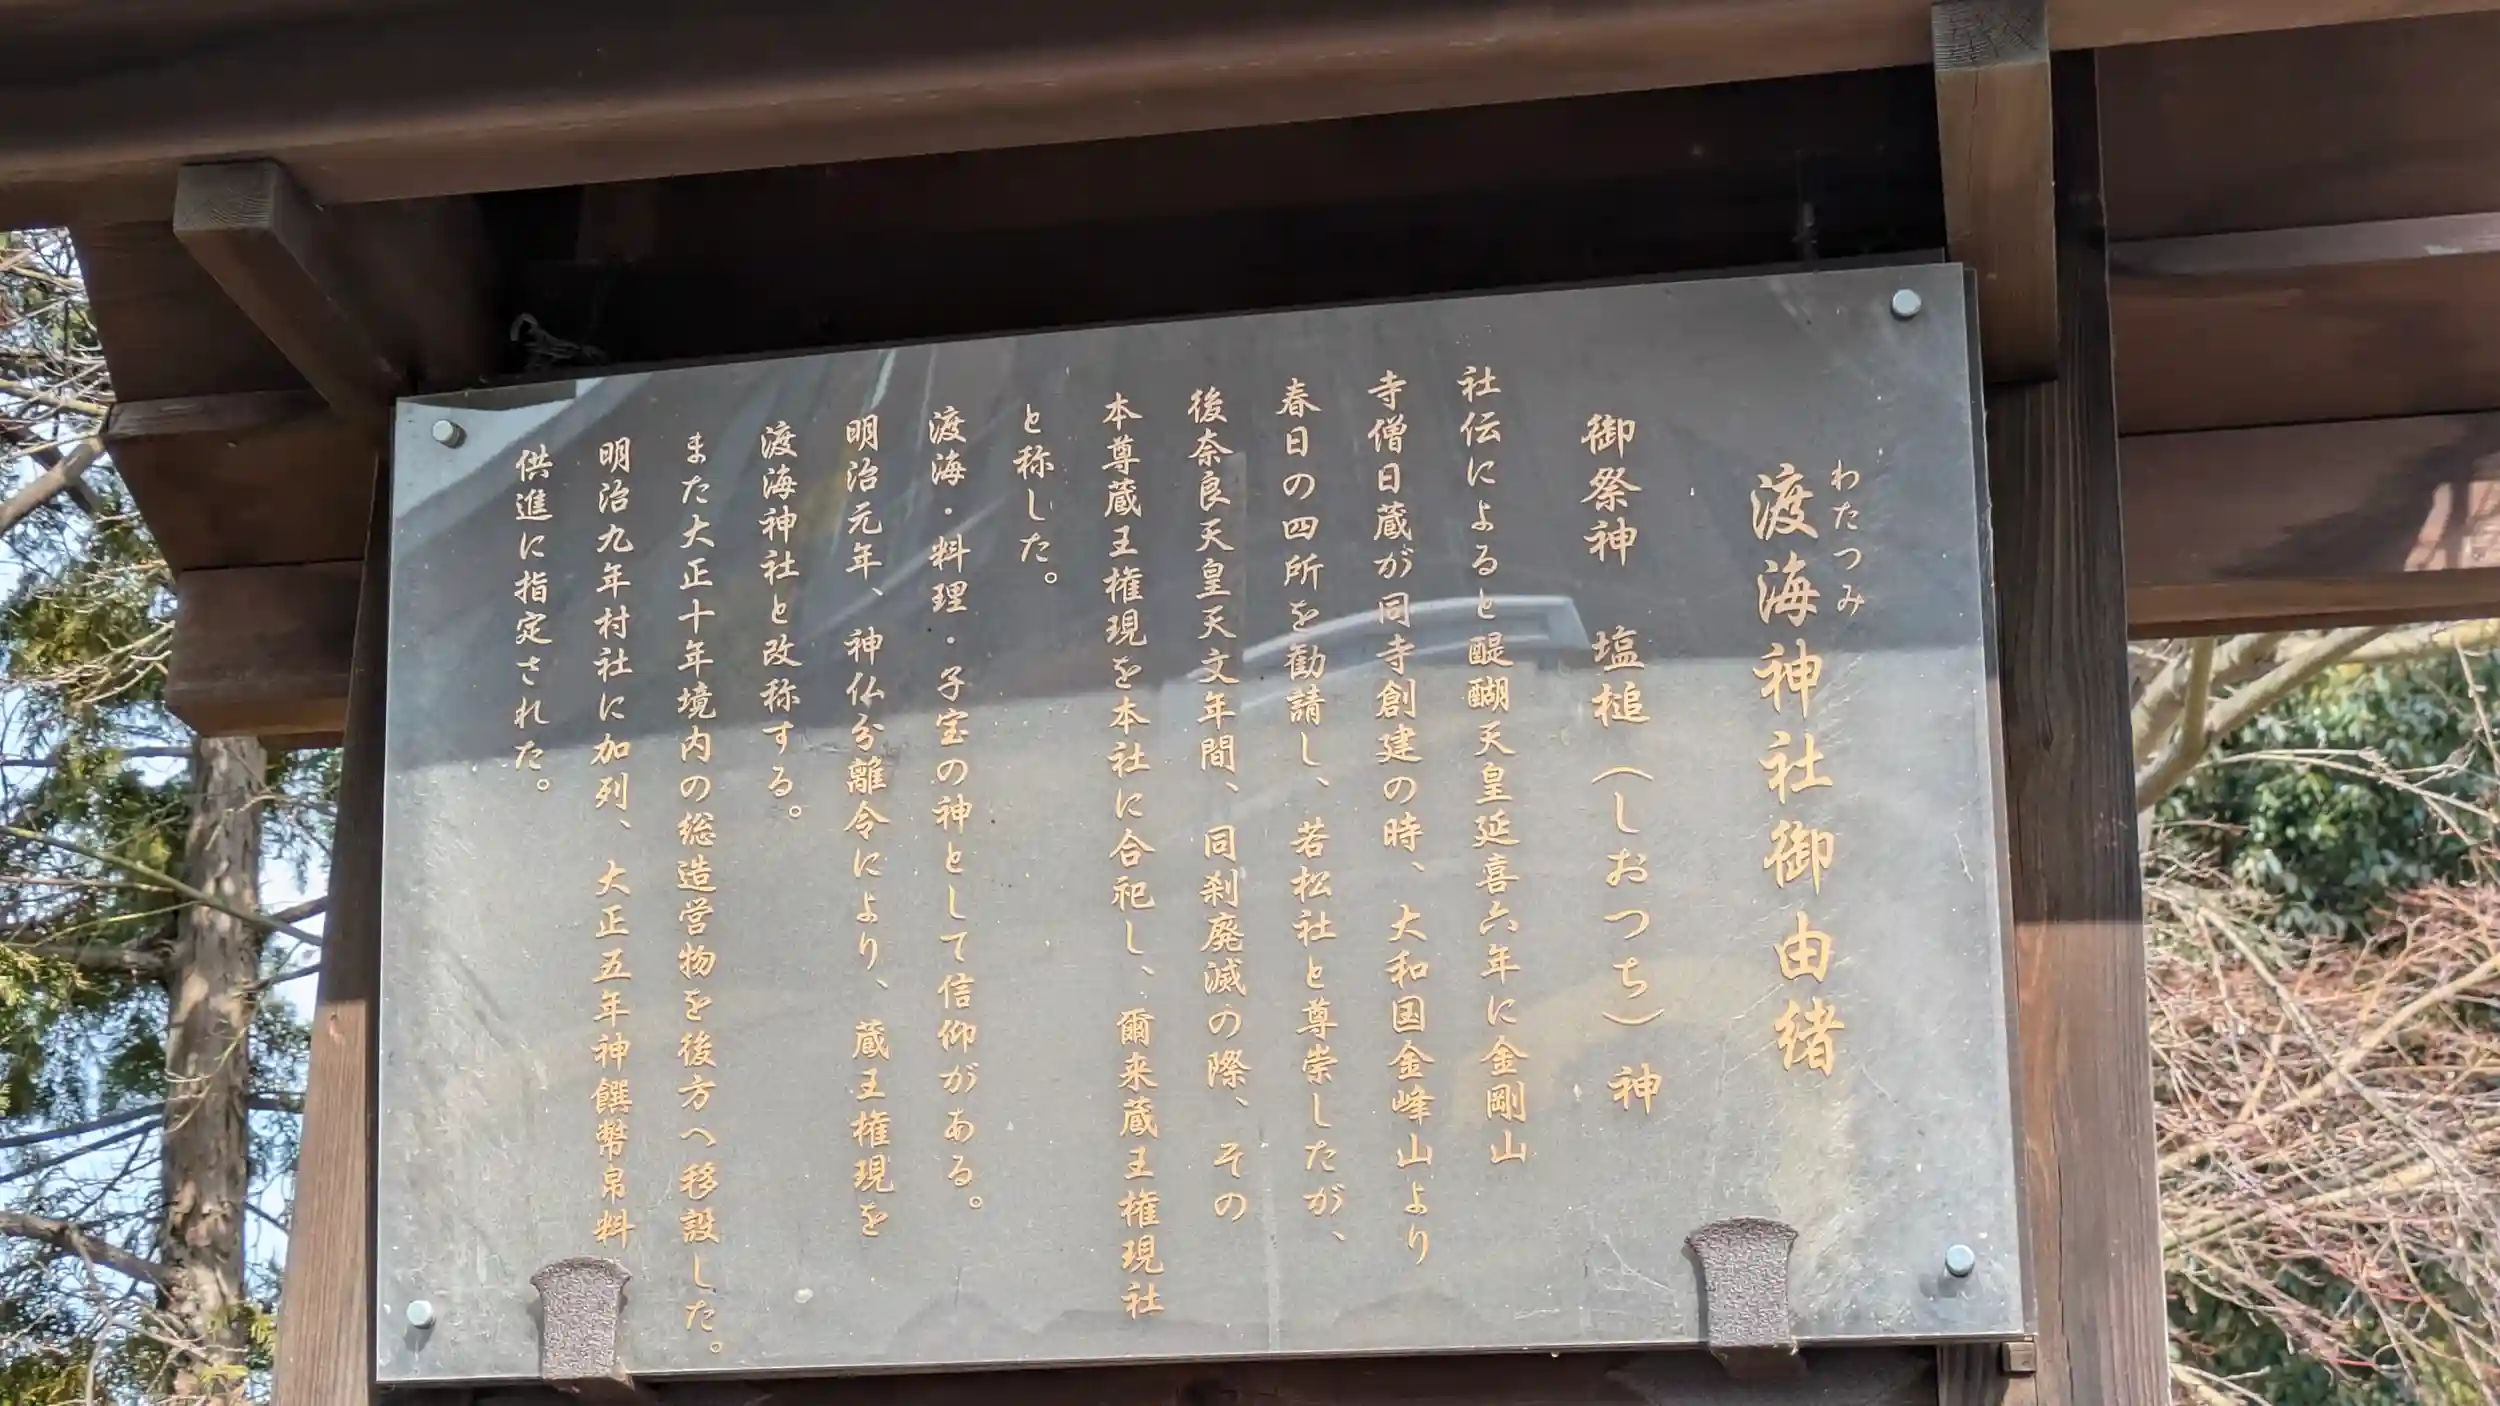 わたつみ
渡海神社御由緒
御祭神　塩槌（しおつち）神
社伝によると醍醐天皇延喜六年に金剛山
寺僧日蔵が同寺創建の時、大和国金峰山より
春日の四所を勧請し、若松社と尊崇したが、
後奈良天皇天文年間、同刹廃滅の際、その
本尊蔵王権現を本社に合祀し、爾来蔵王権現社
と称した。
渡海・料理・子宝の神として信仰がある。
明治元年、神仏分離令により、蔵王権現を
渡海神社と改称する。
また大正十年境内の総造営物を後方へ移設した。
明治九年村社に加列、大正五年神饌幣帛料
供進に指定された。